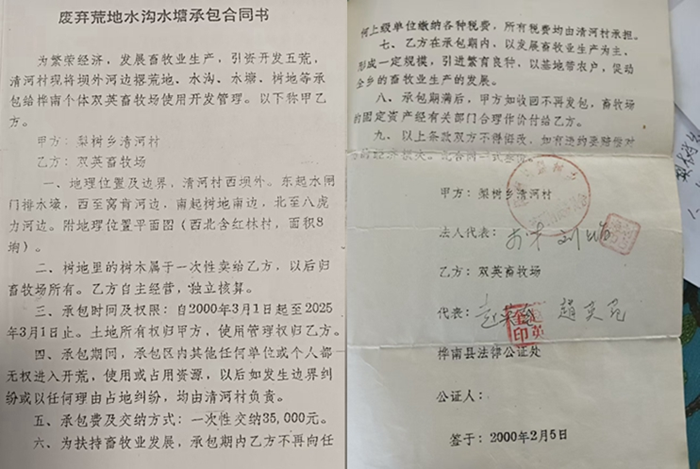 废弃荒地水沟水塘承包合同书
为繁荣经济，发展畜牧业生产，引资开发五荒，
清河村现将坝外河边撂荒地、水沟、水塘、树地等承
包给桦南个体双英畜牧场使用开发管理。以下称甲乙
方。
甲方：梨树乡清河村
乙方：双英畜牧场
一、地理位置及边界，清河村西坝外。东起水闸
门排水壕，西至窝肯河边，南起树地南边，北至八虎
力河边。附地理位置平面图（西北含红林村，面积8
垧）。
二、树地里的树木属于一次性卖给乙方，以后归
畜牧场所有。乙方自主经营，独立核算。
三、承包时间及权限：自2000年3月1日起至2025
年3月1日止。土地所有权归甲方，使用管理权归乙方。
四、承包期间，承包区内其他任何单位或个人都
无权进入开荒，使用或占用资源，以后如发生边界纠
纷或以任何理由占地纠纷，均由清河村负责。
五、承包费及交纳方式：一次性交纳35,000元。
六、为扶持畜牧业发展，承包期内乙方不再向任
何上级单位缴纳各种税费，所有税费均由清河村承担。
七、乙方在承包期内，以发展畜牧业生产为主，
形成一定规模，引进繁育良种，以基地带农户，促动
全乡的畜牧业生产的发展。
八、承包期满后，甲方如收回不再发包，畜牧场
的固定资产经有关部门合理作价付给乙方。
九、以上条款双方不得悔改，如有违约要赔偿对
方的经济损失。此合同一式叁份
甲方：梨树乡清河村
法人代表：
乙方：双英畜牧场
代表：
桦南县法律公证处
公证人：
签于：2000年2月5日